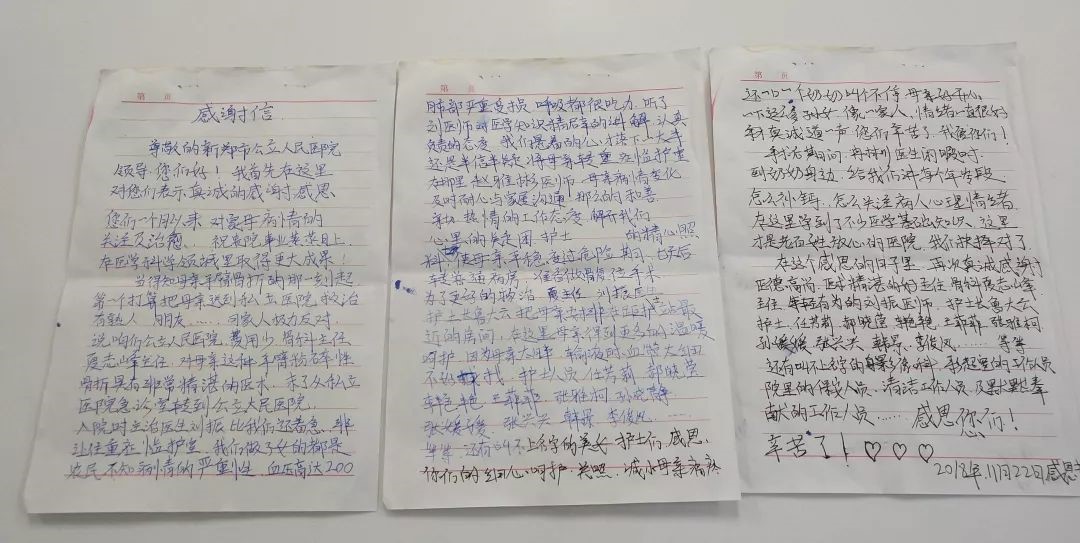 第 页
感谢信
尊敬的新郑市公立人民医院
领导 您们好！我首先在这里
对您们表示真诚的感谢 感恩
您们一个月以来 对爱母病情的
关注及治愈、祝贵院事业蒸蒸日上
在医学科学领域里取得重大成果！
当得知母亲手臂两折的那一刻起
第一个打算把母亲送到私立医院 救治
有熟人 朋友……回家人极力反对
说咱们公立人民医院 费用少 骨科主任
夏志峰主任，对母亲这种手臂粉碎性
骨折是有非常精湛的医术，来了从私立
医院急诊室转到公立人民医院，
入院时主治医生刘振比我们还着急 非
让住重症监护室 我们做子女的都是
农民 不知病情的严重性 血压高达200
第 页
肺部严重受损 呼吸都很吃力 听了
刘医师对医学知识 病后章的讲解 认真
负责的态度 我们悬着的心才落下 大手
还是半信半疑 将母亲转重症监护室
在那里 赵雅彬医师 母亲病情变化
及时耐心与家属沟通 那么的和善
亲切 热情的工作态度 解开我们
心里的疑团 护士 的精心照
料 使母亲平稳 度过危险期，七天后
转普通病房 准备做肩复位手术
为了更好的救治 夏主任 刘振医生
护士长鲁大会 把母亲安排在离护士站最
近的房间，在这里母亲得到更多的温暖
呵护，因为母亲大小便，输液时 血管太细
不好找，护士人员 任芳莉 郝晓莹
韩艳艳 王菲菲 张雅珂 孙晓静
张媛媛 张兴兴 韩景 李俊凤……
等等 还有叫不上名字的美女 护士们 感恩
你们的细心 呵护 关照 减少母亲痛疼
第 页
还一口一个奶奶叫个不停 母亲好开心
一下这么多孙女 像一家人，情绪一直很好
我真诚道一声 您们辛苦了 我爱你们！
到奶奶身边，给我们讲每个年龄段
怎么补钙，怎么关注病人心理 情绪
在这里学到了不少医学基础知识 这里
才是老百姓放心的医院 我们选择对了
在这个感恩的日子里，再次真诚感谢
医德高尚 医术精湛的好主任 骨科夏志峰
主任 年轻有为的刘振医师，护士长鲁大会
护士，任芳莉 郝晓莹 韩艳艳 王菲菲 张雅珂
孙媛媛 张兴兴 韩景 李俊凤……等等
院里的保安人员 清洁工作人员 及默默奉
献的工作人员……感恩您们！
辛苦了！♡♡♡
2018年11月22日感恩